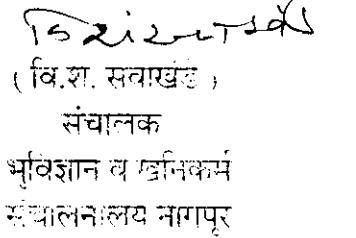 ( वि.श. सवाखंडे )
संचालक
भुविज्ञान व खनिकर्म
संचालनालय नागपूर